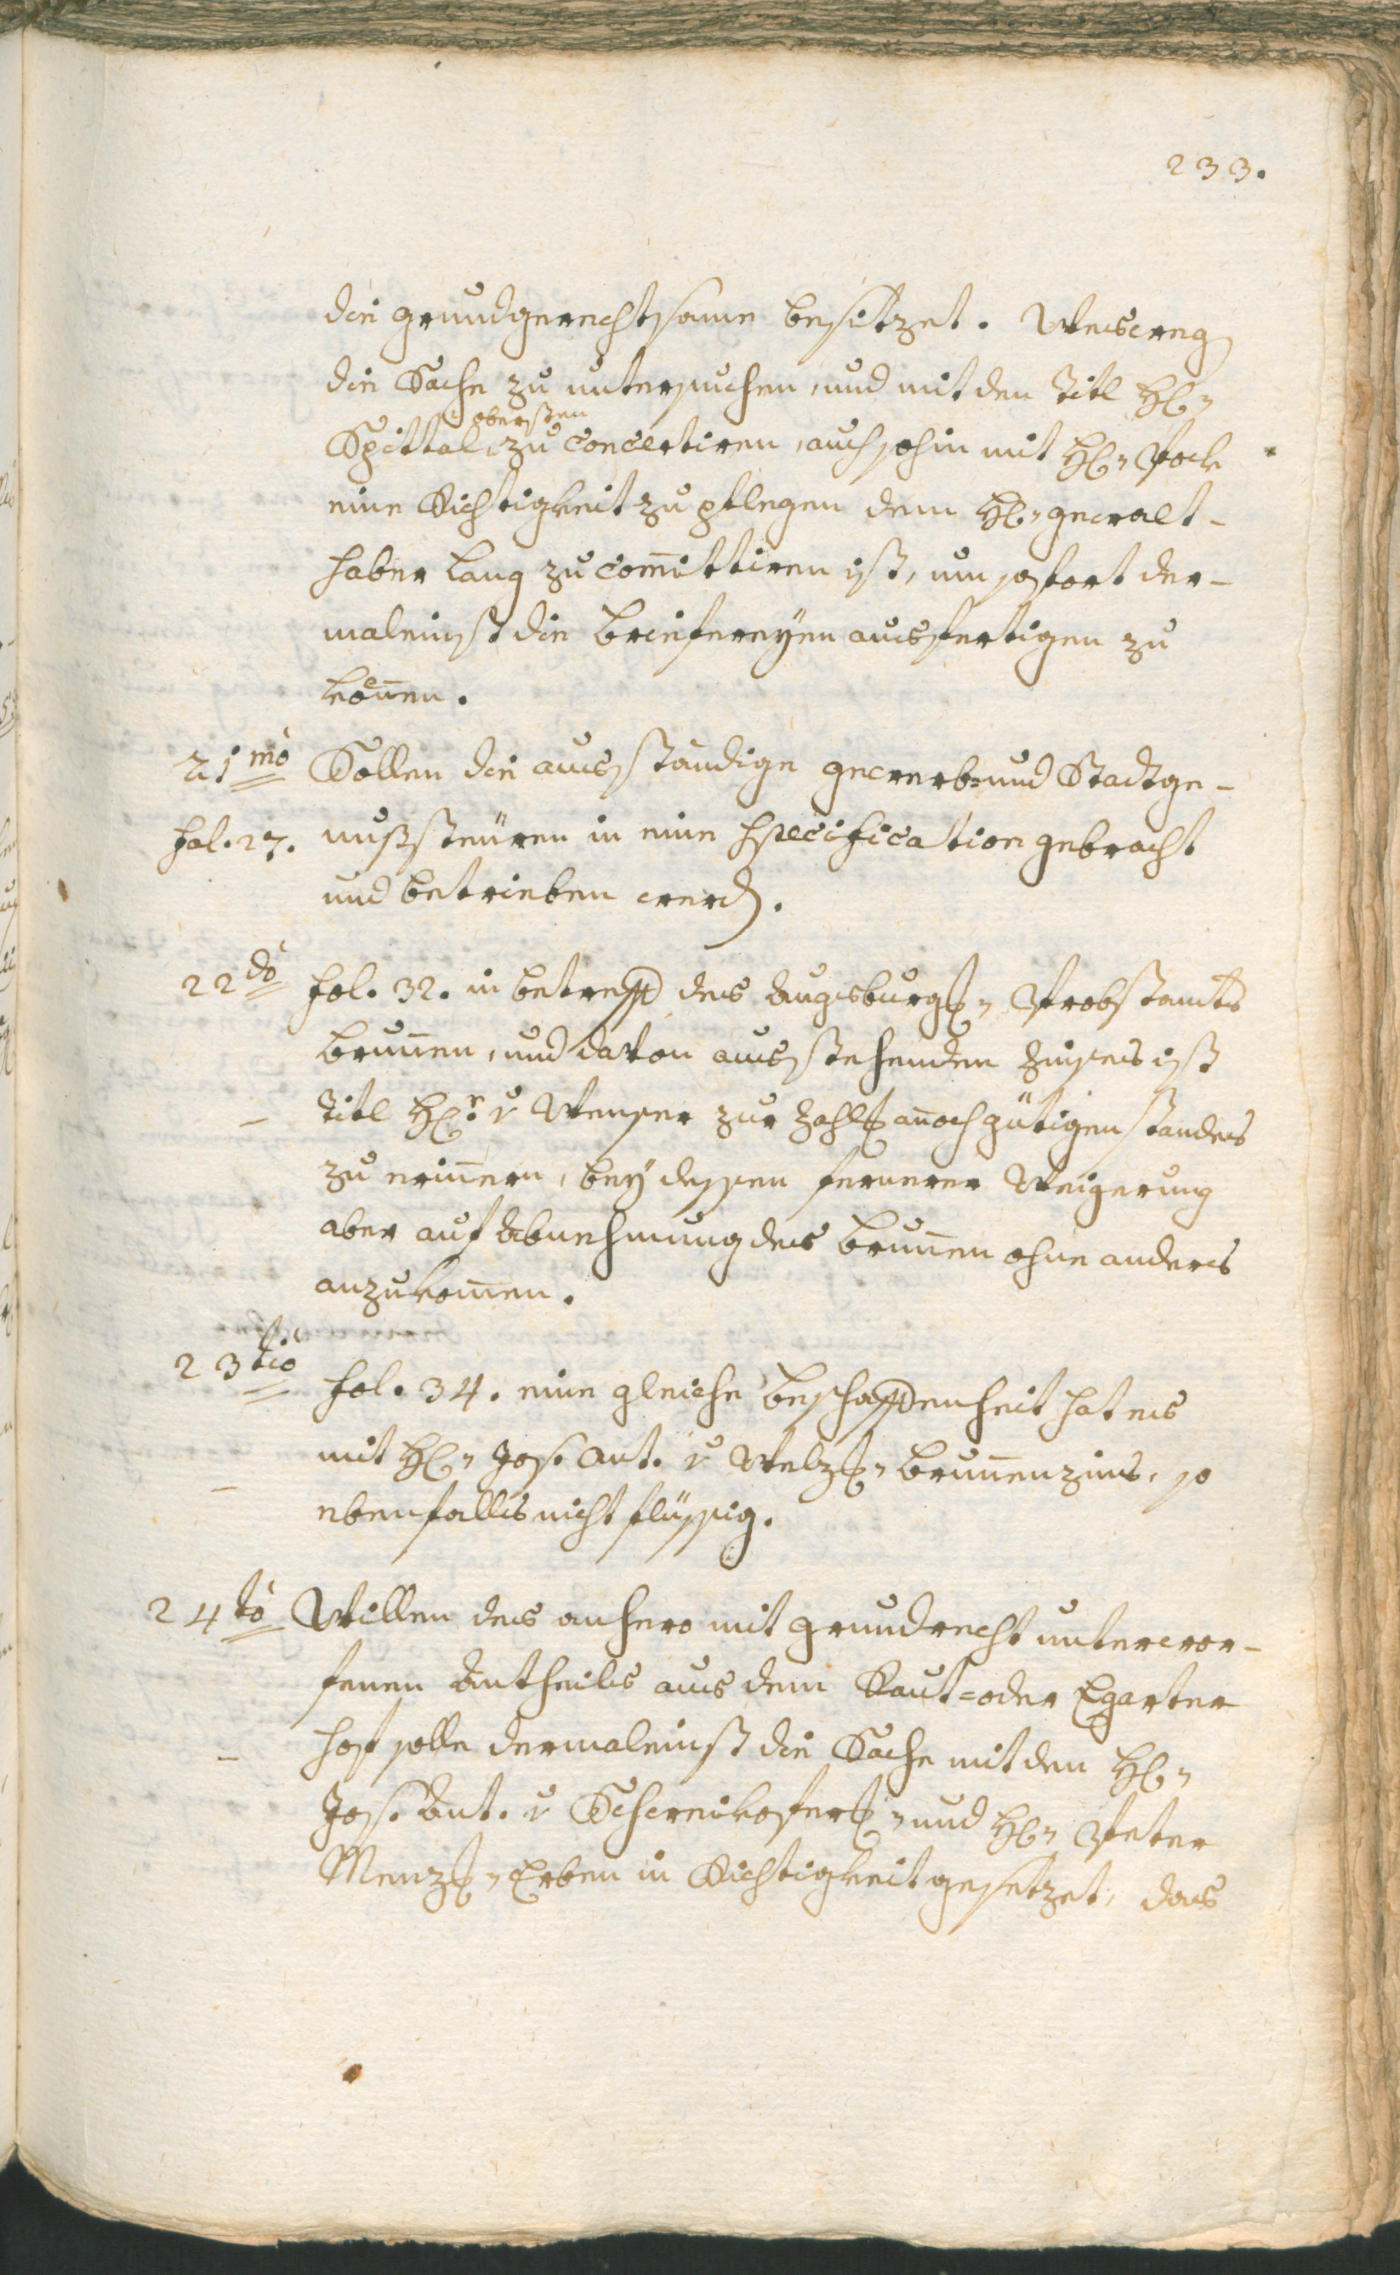 233.
die grundgerechtsame besitzet. Wesweg
die Sache zu untersuchen, und mit den Titl H:
Spittal obersten zu concertiren, auch sohin mit H: Pock
eine Richtigkeit zu pflegen dem H: gewalt-
haber Lang zu com̄ittiren ist, um sofort der-
maleinst die briefereyen ausfertigen zu
können.
21mò Sollen die ausständige gewerb- und Stadtge-
fol. 27. nußsteüren in eine specification gebracht
und betrieben werd.
22dò fol. 32. in betreff des Augsburg: Probstamts
brun̄en, und davon ausstehenden Zinses ist
Titl Hr. v Wenser zur Zahl: an̄och gütigen standes
zu erin̄ern, bey dessen fernerer Weigerung
aber auf Abnehmung des brun̄en ohne anders
anzukom̄en.
23tiò fol. 34. eine gleiche beschaffenheit hat es
mit H: Jos. Ant. v Welz: brun̄enzins, so
ebenfalls nicht flüssig.
24tò Willen des anhero mit grundrecht unterwor-
fenen Antheils aus dem Kaut- oder Egarter
hof solle dermaleinst die Sache mit den H:
Jos. Ant. v Schweikofer: und H: Peter
Menz: Erben in Richtigkeit gesetzet, das